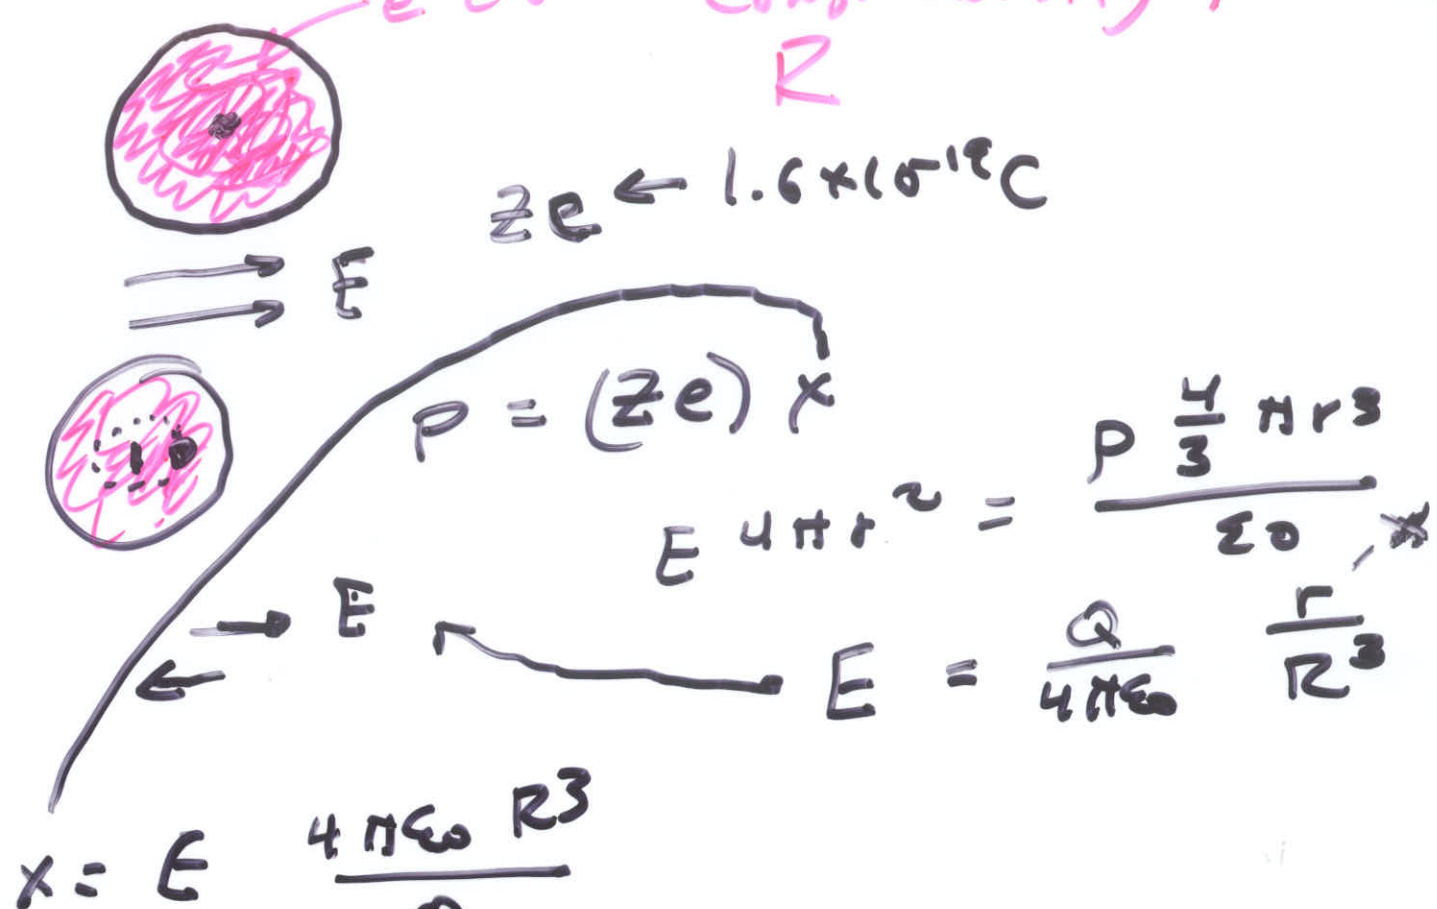 R
Ze ← 1.6×10⁻¹⁹ C
E
p = (Ze) x
E 4πr² = ρ 4/3 πr³ / ε0
E
E = Q / 4πε0 r / R³
, x
x = E 4πε0 R³